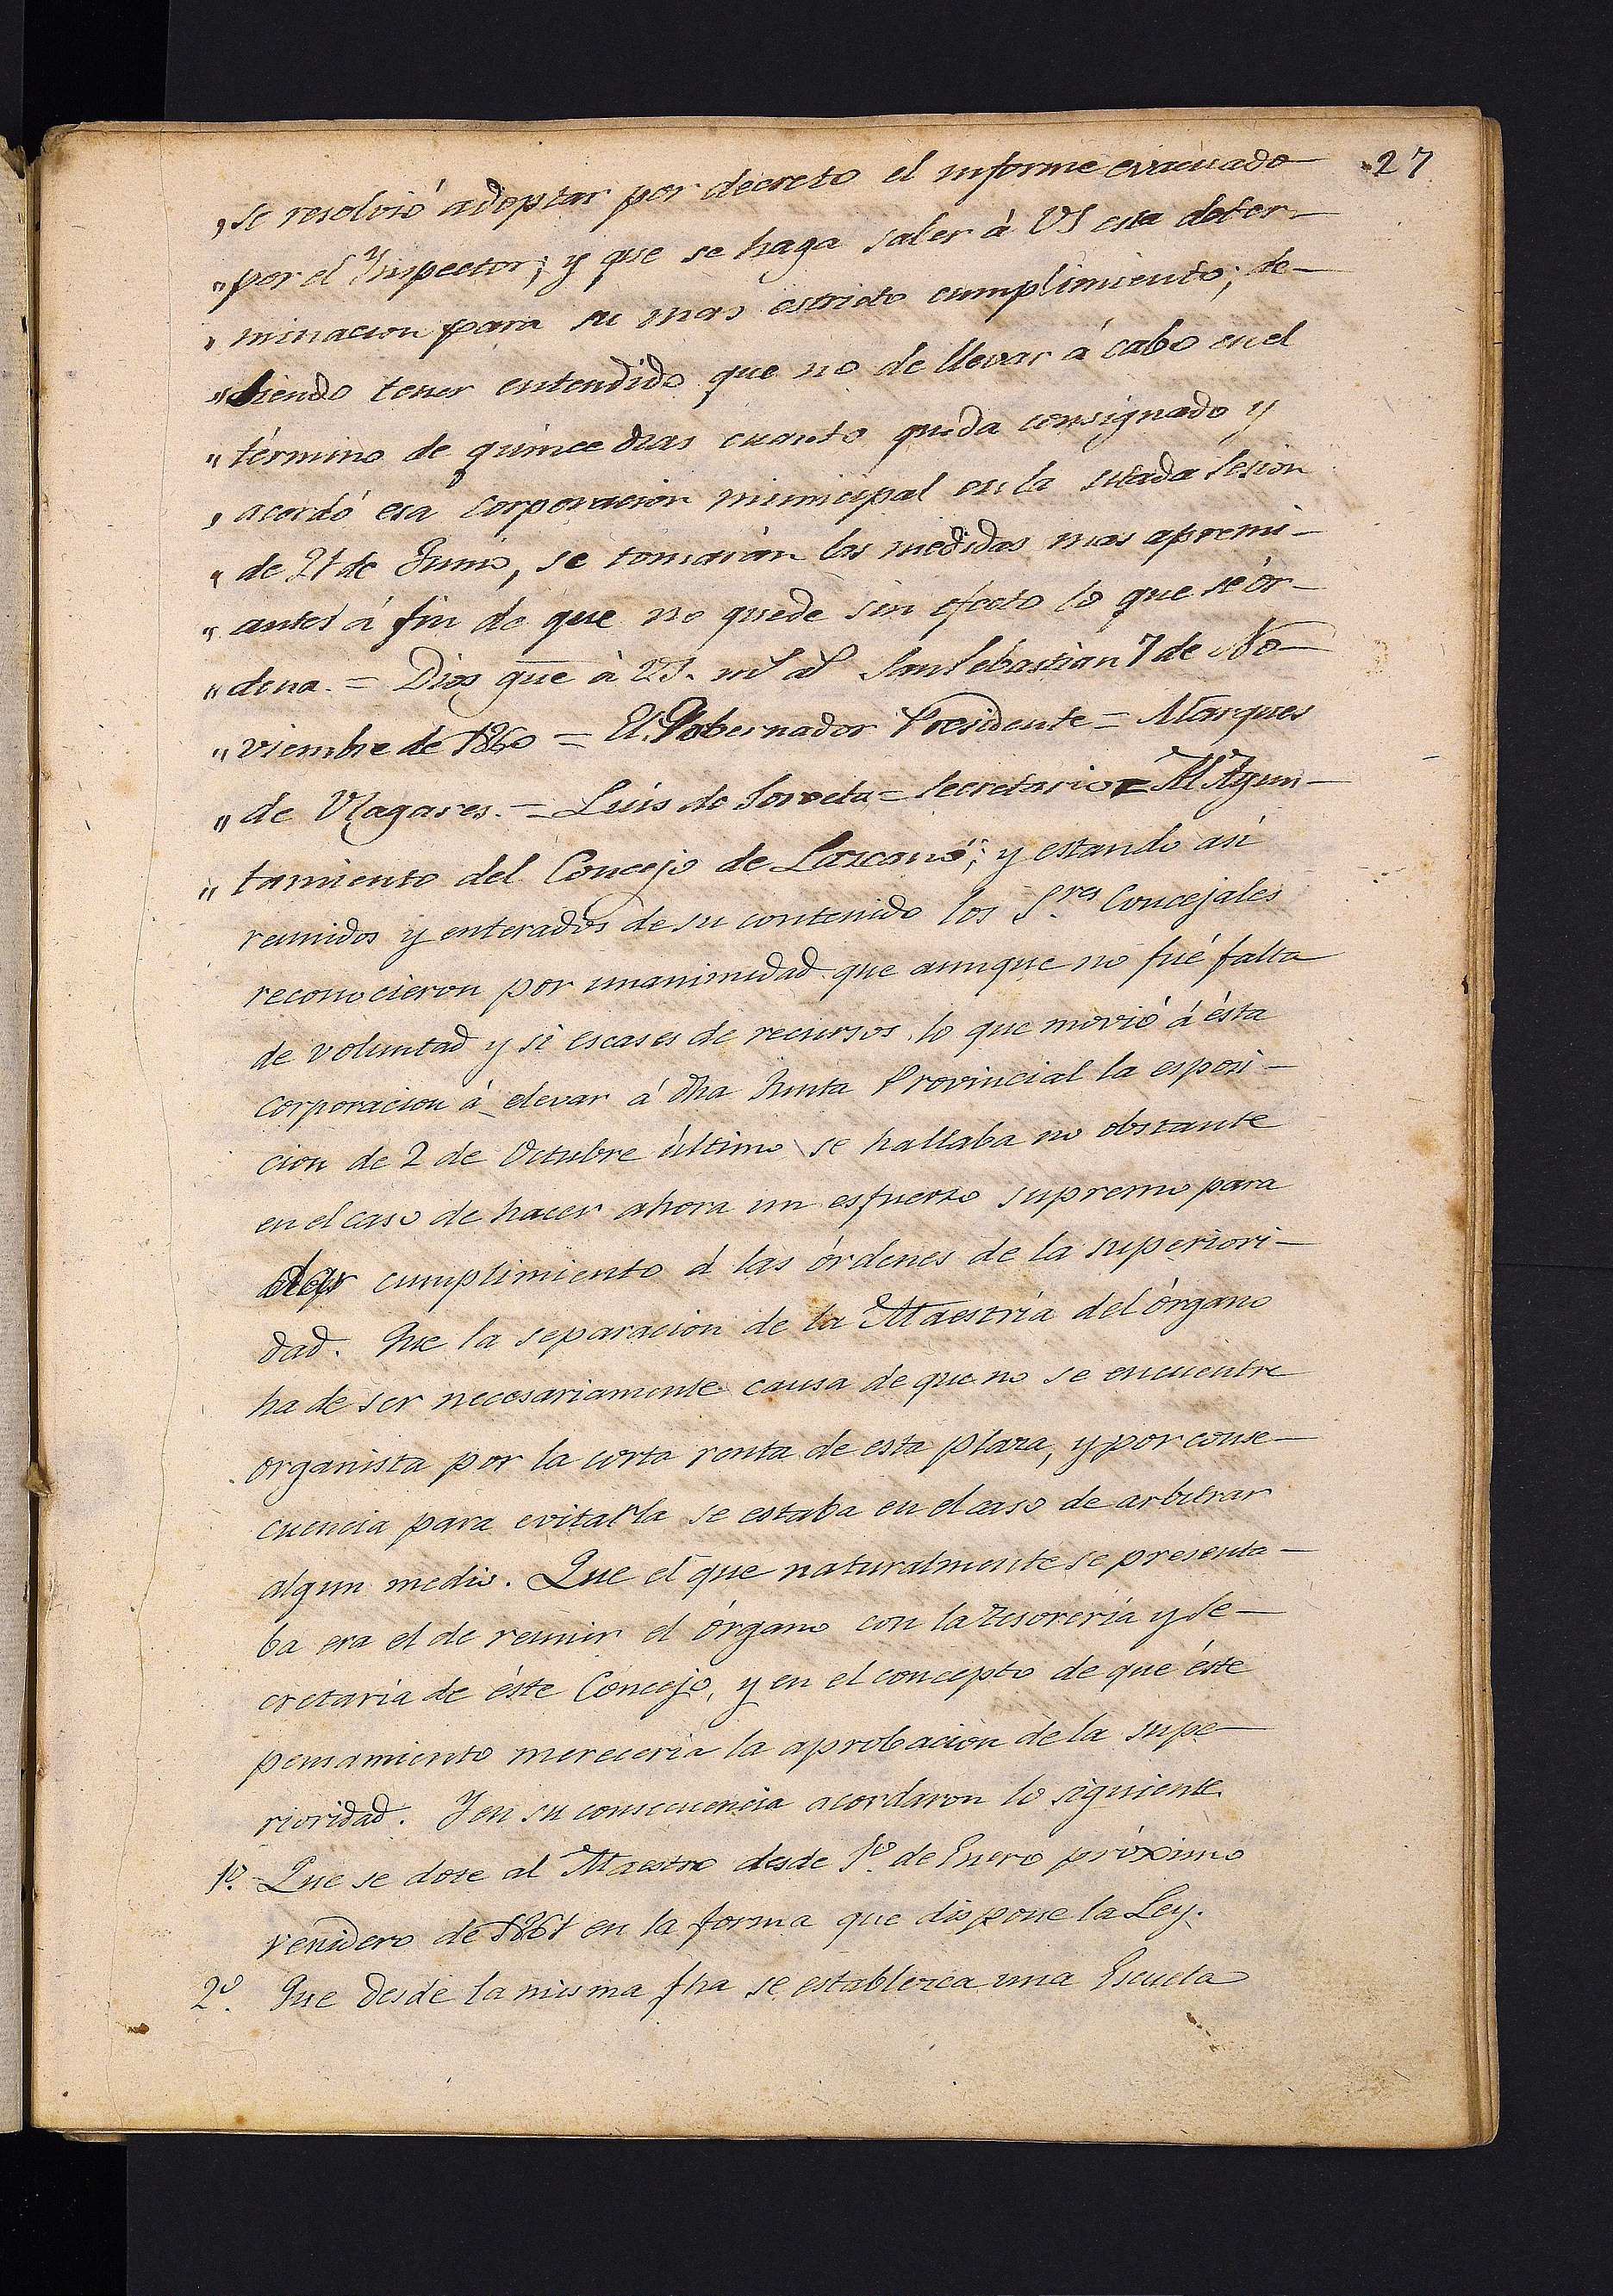 27
„ se resolvió adoptar por decreto el informe evacuado
„ por el Ynspector; y que se haga saber à VS esta deter-
„ minacion para su mas estricto cumplimiento; de-
„ biendo tener entendido que no de llevar á cabo en el
„ término de quince dias cuanto queda consignado y
„ acordó esa corporacion municipal en la citada sesion
„ de 21 de Junio, se tomarán las medidas mas apremi-
„ antes á fin de que no quede sin efecto lo que se or-
„ dena. = Dios gue à VS. ms as San Sebastian 7 de No-
„ viembre de 1860 = El Gobernador Presidente = Marques
„ de Ulagares. = Luis de Soroeta = Secretario = Al Ayun-
„ tamiento del Concejo de Lazcano"; y estando asi
reunidos y enterados de su contenido los S.res Concejales
reconocieron por unanimidad que aunque no fué falta
de voluntad y si escases de recursos lo que movió á ésta
corporacion á elevar á dha Junta Provincial la esposi-
cion de 2 de Octubre último se hallaba no obstante
en el caso de hacer ahora un esfuerzo supremo para
dar cumplimiento á las órdenes de la superiori-
dad. Que la separacion de la Maestría del órgano
ha de ser necesariamente causa de que no se encuentre
organista por la corta renta de esta plaza, y por conse-
cuencia para evitarla se estaba en el caso de arbitrar
algun medio. Que el que naturalmente se presenta-
ba era el de reunir el órgano con la Tesoreria y Se-
cretaria de éste Concejo, y en el concepto de que éste
pensamiento mereceria la aprobacion de la supe-
rioridad. Y en su consecuencia acordaron lo siguiente.
1º. Que se dote al Maestro desde 1º. de Enero próximo
venidero de 1861 en la forma que dispone la Ley.
2º. Que desde la misma fha se establezca una Escuela